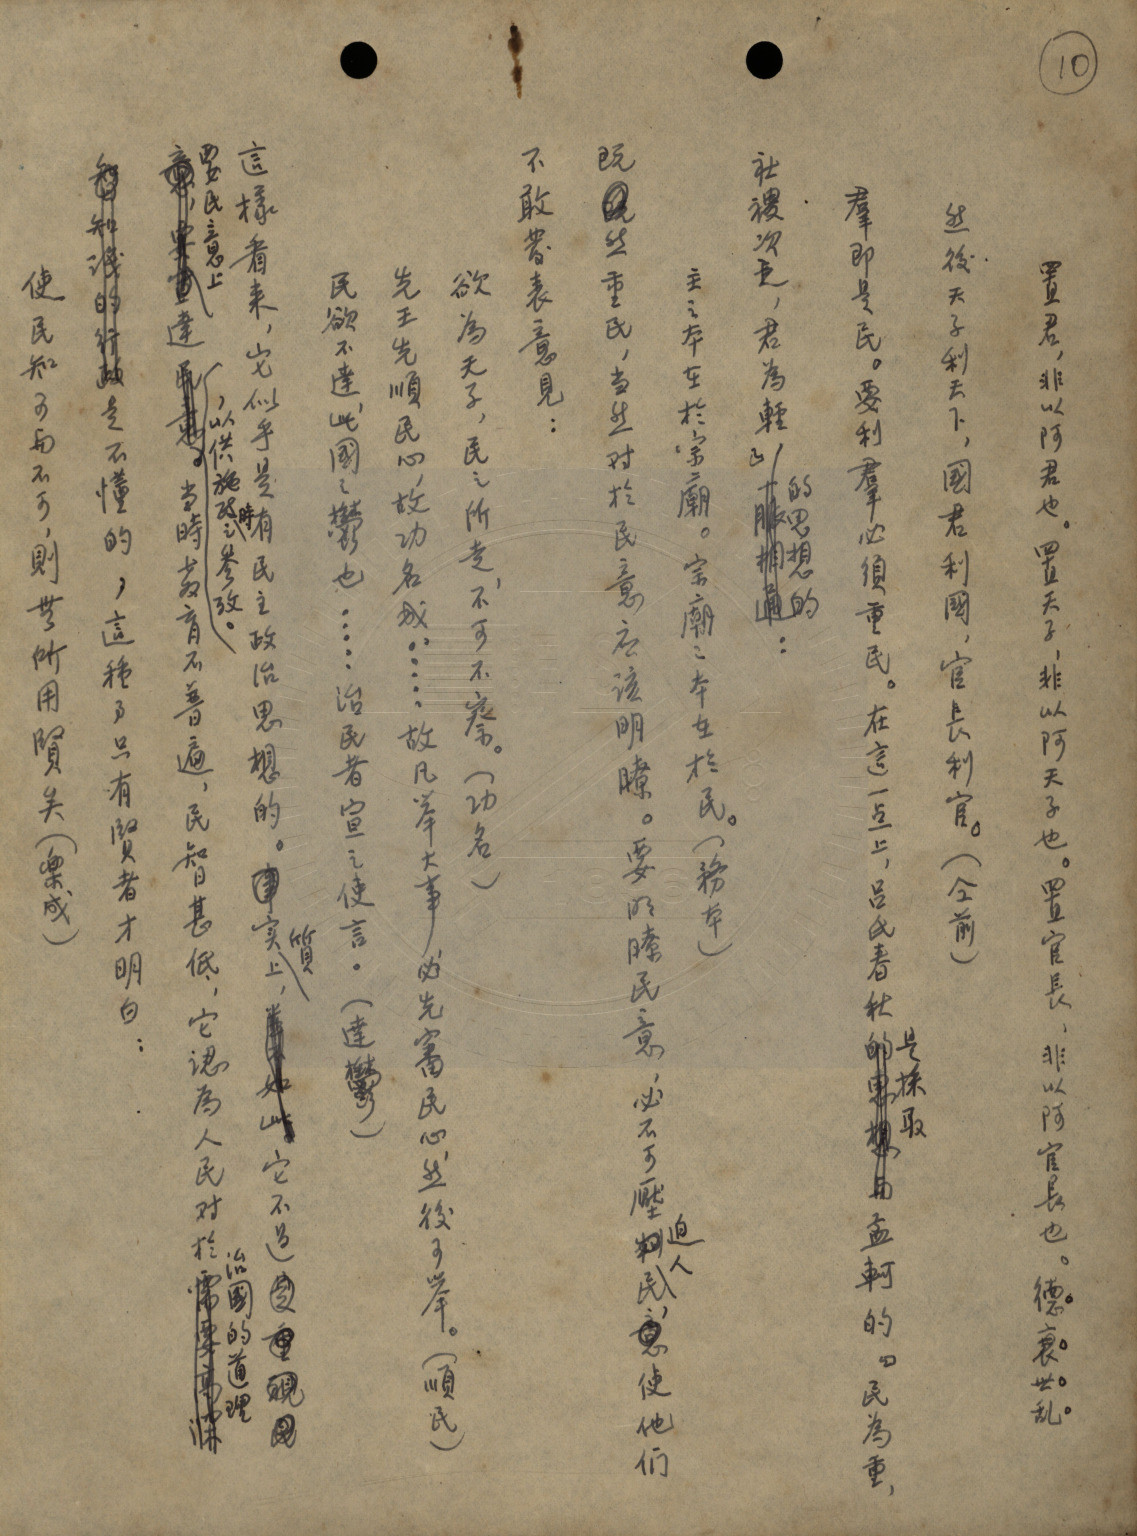 10
置君,非以阿君也。置天子,非以阿天子也。置官長,非以阿官長也。德。衰。世。乱。
然後天子利天下,國君利國,官長利官。(仝前)
羣即是民。要利羣必須重民。在這一点上,呂氏春秋是採取孟軻的「民為重,
社稷次之,君為輕」的思想的:
主之本在於宗廟。宗廟之本在於民。(務本)
既然重民,当然对於民意应该明瞭。要明瞭民意,必不可壓迫人民,使他們
不敢發表意見:
欲為天子,民之所走,不可不察。(功名)
先王先順民心,故功名成。……故凡举大事,必先審民心,然後可举。(順民)
民欲不達,此國之鬱也……治民者宣之使言。(達鬱)
這樣看来,它似乎是有民主政治思想的。实質上,它不过
要民意上達,以供施政時之參攷。当時教育不普遍,民智甚低,它認為人民对於治國的道理
是不懂的,這種了只有賢者才明白:
使民知可与不可,則無所用賢矣(樂成)